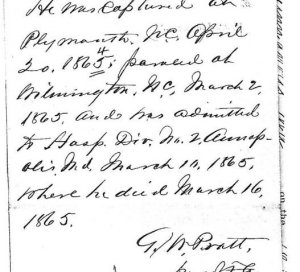 He was captured at
Plymouth, N.C. April
20, 1865, paroled at
4
Wilmington, N.C., March 2,
1865, and was admitted
to Hosp. Div. No. 2, Annap-
olis, Md., March 10, 1865,
where he died March 16,
1865.
G. W. Pratt,